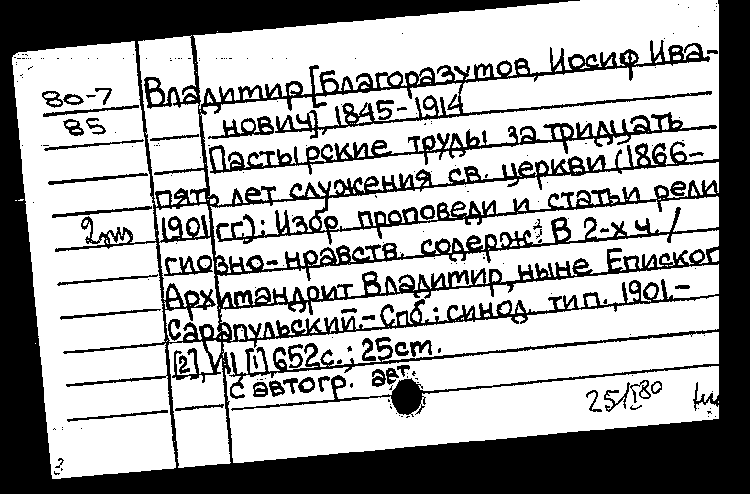 80-7 Владимир [Благоразумов, Иосиф Ива-
85 нович], 1845-1914
Пастырские труды за тридцать
пять лет служения св. церкви (1866-
1901 гг.): Избр. проповеди и статьи рели
гиозно-нравств. содерж.: В 2-х ч. /
Архимандрит Владимир, ныне Епископ
Сарапульский.-Спб.: синод. тип., 1901.-
[2], VIII, [1], 652с.; 25см.
с автогр. авт.
25/I 80
3